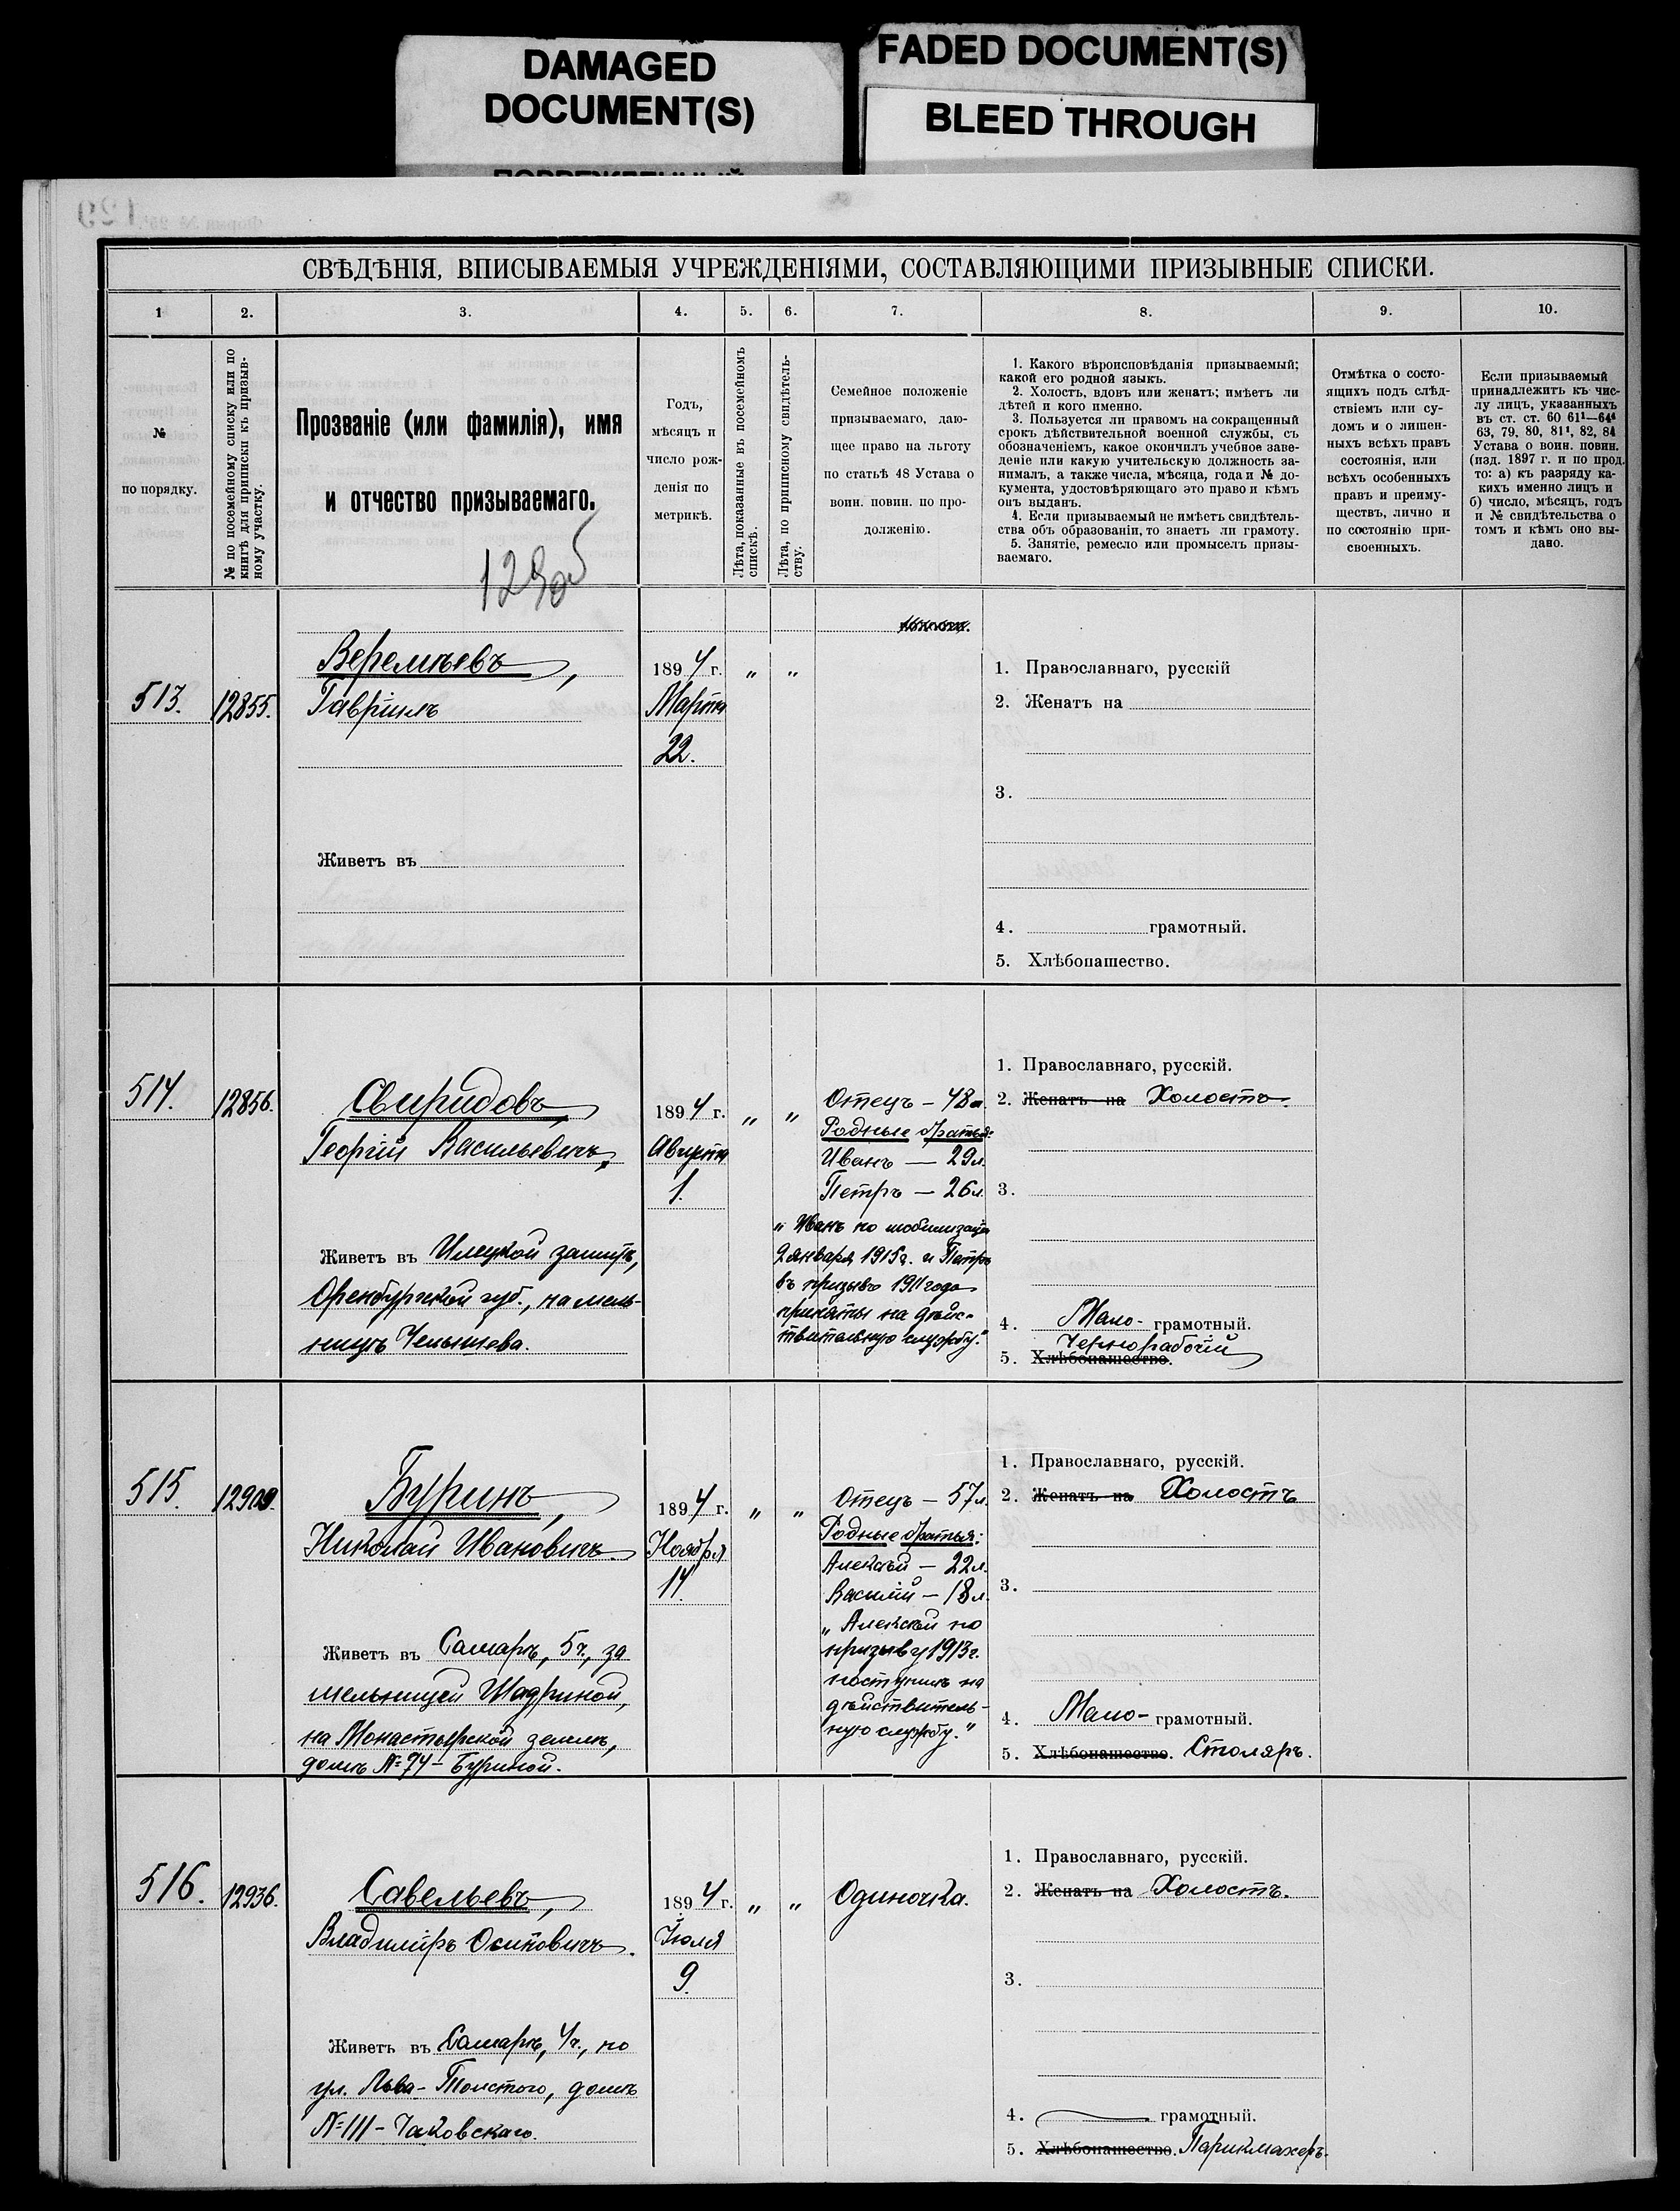 DAMAGED
DOCUMENT(S)
FADED DOCUMENT(S)
BLEED THROUGH
129
СВѢДѢНІЯ, ВПИСЫВАЕМЫЯ УЧРЕЖДЕНІЯМИ, СОСТАВЛЯЮЩИМИ ПРИЗЫВНЫЕ СПИСКИ.
1 2. 3. 4. 5. 6. 7. 8. 9. 10.
№
по порядку.
№ по посемейному списку или по
книгѣ для приписки къ призыв-
ному участку.
Прозваніе (или фамилія), имя
и отчество призываемаго.
Годъ,
мѣсяцъ и
число рож-
денія по
метрикѣ.
Лѣта, показанные въ посемейномъ
спискѣ.
Лѣта, по приписному свидѣтель-
ству.
Семейное положеніе
призываемаго, даю-
щее право на льготу
по статьѣ 48 Устава о
воин. повин. по про-
долженію.
1. Какого вѣроисповѣданія призываемый;
какой его родной языкъ.
2. Холостъ, вдовъ или женатъ; имѣетъ ли
дѣтей и кого именно.
3. Пользуется ли правомъ на сокращенный
срокъ дѣйствительной военной службы, съ
обозначеніемъ, какое окончилъ учебное заве-
деніе или какую учительскую должность за-
нималъ, а также числа, мѣсяца, года и № до-
кумента, удостовѣряющаго это право и кѣмъ
онъ выданъ.
4. Если призываемый не имѣетъ свидѣтель-
ства объ образованіи, то знаетъ ли грамоту.
5. Занятіе, ремесло или промыселъ призы-
ваемаго.
Отмѣтка о состо-
ящихъ подъ слѣд-
ствіемъ или су-
домъ и о лишен-
ныхъ всѣхъ правъ
состоянія, или
всѣхъ особенныхъ
правъ и преиму-
ществъ, лично и
по состоянію при-
своенныхъ.
Если призываемый
принадлежитъ къ чис-
лу лицъ, указанныхъ
въ ст. ст. 60 61¹—64⁴
63, 79, 80, 81¹, 82, 84
Устава о воин. повин.
(изд. 1897 г. и по прод.
то: а) къ разряду ка-
кихъ именно лицъ и
б) число, мѣсяцъ, годъ
и № свидѣтельства о
томъ и кѣмъ оно вы-
дано.
129об
513.
12855.
Веремѣевъ,
Гавріилъ
Живетъ въ
1894 г.
Марта
22.
„ „
1. Православнаго, русскій
2. Женатъ на
3.
4. грамотный.
5. Хлѣбопашество.
514.
12856.
Свиридовъ,
Георгій Васильевичъ.
Живетъ въ Илецкой защитѣ,
Оренбургской губ., на мель-
ницѣ Челышева.
1894 г.
Августа
1.
„ „
Отецъ – 48 л.
Родные братья:
Иванъ — 29 л.
Петръ — 26 л.
„Иванъ по мобилизаціи
2 января 1915 г. и Петръ
въ призывъ 1911 года
приняты на дѣйс-
твительную службу.“
1. Православнаго, русскій.
2. Женатъ на Холостъ.
3.
4. Мало- грамотный.
Чернорабочій
5. Хлѣбопашество.
515.
12909.
Буринъ,
Николай Ивановичъ.
Живетъ въ Самарѣ, 5 ч., за
мельницей Шадриной,
на Монастырской землѣ,
домъ № 74 – Буриной.
1894 г.
Ноября
14.
„ „
Отецъ – 57 л.
Родные братья:
Алексѣй – 22 л.
Василій – 18 л.
„Алексѣй по
призыву 1913 г.
поступилъ на
дѣйствитель-
ную службу.“
1. Православнаго, русскій.
2. Женатъ на Холостъ
3.
4. Мало- грамотный.
5. Хлѣбопашество. Столяръ.
516.
12936.
Савельевъ,
Владиміръ Осиповичъ.
Живетъ въ Самарѣ, 4 ч., по
ул. Льва-Толстого, домъ
№ 111 – Чаковскаго.
1894 г.
Іюля
9.
„ „
Одиночка.
1. Православнаго, русскій.
2. Женатъ на Холостъ.
3.
4. грамотный.
5. Хлѣбопашество. Парикмахеръ.